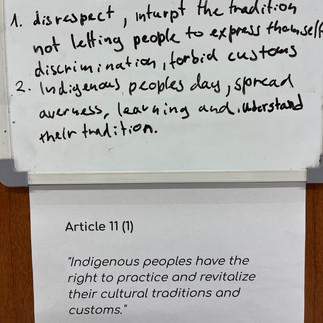 1. disrespect, inturpt the tradition
not letting people to express themself
discrimination, forbid customs
2. Indigenous peoples day, spread
averness, learning and understand
their tradition.
Article 11 (1)
"Indigenous peoples have the
right to practice and revitalize
their cultural traditions and
customs."